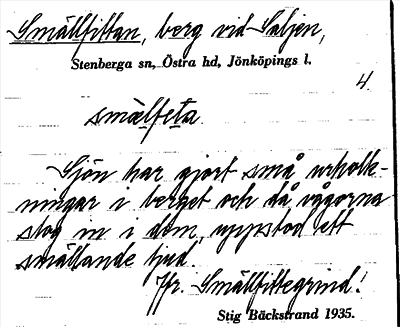 Smällfittan, berg vid Saljen,
Stenberga sn, Östra hd, Jönköpings l.
4.
smälfeta.
Sjön har gjort små urholk-
ningar i berget och då vågorna
slog in i dem, uppstod ett
smällande ljud.
Jfr. Smällfittegrind!
Stig Bäckstrand 1935.